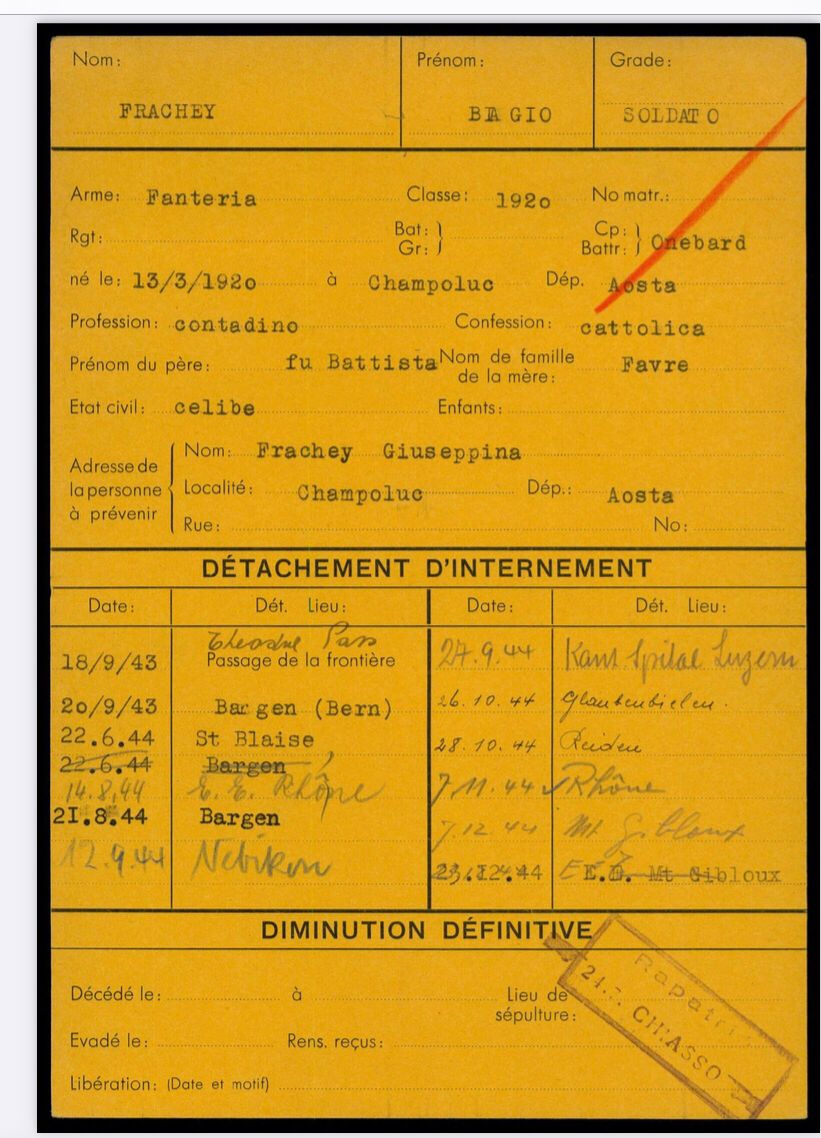 Nom: Prénom: Grade:
FRACHEY BIAGIO SOLDATO
Arme: Fanteria Classe: 1920 No matr.:
Rgt: Bat: Gr: Cp: Battr: Onebard
né le: 13/3/1920 à Champoluc Dép. Aosta
Profession: contadino Confession: cattolica
Prénom du père: fu Battista Nom de famille de la mère: Favre
Etat civil: celibe Enfants:
Adresse de la personne à prévenir
Nom: Frachey Giuseppina
Localité: Champoluc Dép.: Aosta
Rue: No:
DÉTACHEMENT D'INTERNEMENT
Date: Dét. Lieu: Date: Dét. Lieu:
Pass
18/9/43 Passage de la frontière
20/9/43 Bargen (Bern)
22.6.44 St Blaise
22.6.44 Bargen
14.8.44 E.E. Rhône
21.8.44 Bargen
12.9.44 Nebikon
27.9.44 Kant. Spital Luzern
26.10.44
28.10.44 Reiden
7.11.44 Rhône
7.12.44 Mt Gibloux
23.12.44 Mt Gibloux
DIMINUTION DÉFINITIVE
Décédé le: à Lieu de sépulture:
Evadé le: Rens. reçus:
Libération: (Date et motif)
CHIASSO